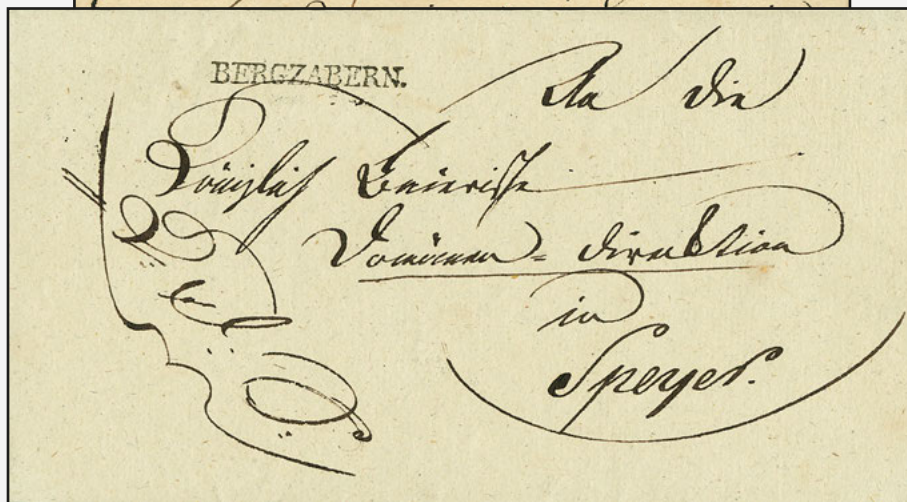 BERGZABERN.
An die
Königlich Baierische
Domänen=Direktion
in
Speyer.